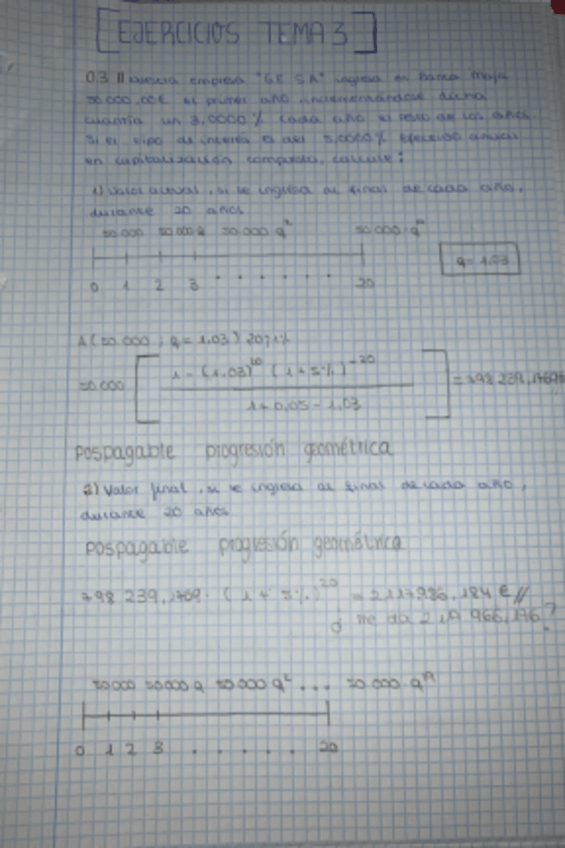 [EJERCICIOS TEMA 3]
empresa "GESA" ingresa en Banca
50.000,00€ el primer año incrementándose dicha
cuantía un 3,0000% cada año el resto de los años.
Si el tipo de interés es del 5,0000% efectivo anual
en capitalización compuesta, calcule:
1) Valor actual, si se ingresa al final de cada año,
durante 20 años
50.000 50.000 q 50.000 q² 50.000 q
0 1 2 3 . . . . . . 20
q = 1,03
A (50.000 ; q = 1.03) 20
50.000 [ 1 - (1.03)²⁰ (1 + 5%)⁻²⁰ / 1 + 0,05 - 1.03 ] = 798 239,1769
Pospagable progresión geométrica
2) Valor final, si se ingresa al final de cada año,
durante 20 años
Pospagable progresión geométrica
798 239,1769 · (1 + 5%)²⁰ = 2117986,184 € //
ó me da 2 119 966,176?
50000 50000 q 50000 q² ... 50.000 · q¹⁹
0 1 2 3 . . . . . 20